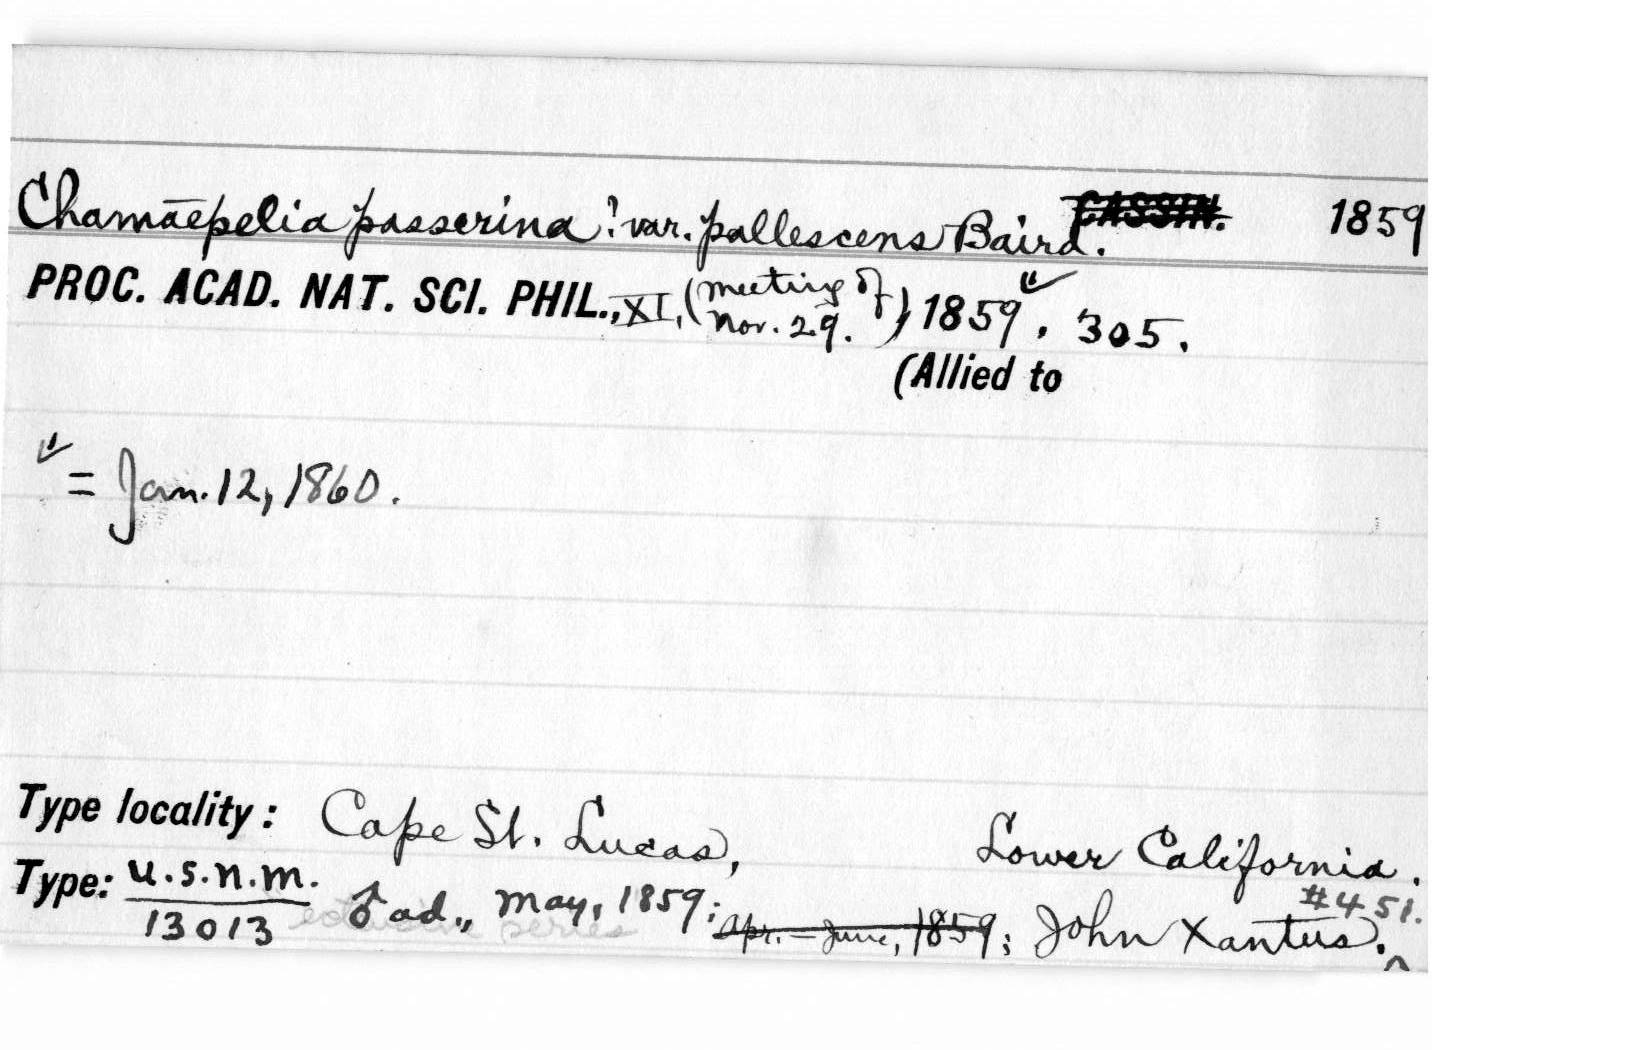 Chamaepelia passerina? var. pallescens Baird. CASSIN. 1859
PROC. ACAD. NAT. SCI. PHIL., XI, (meeting of Nov. 29.), 1859. 305.
(Allied to
= Jan. 12, 1860.
Type locality: Cape St. Lucas, Lower California.
Type: U.S.N.M. 13013 extensive series ♂ ad., May, 1859; Apr. – June, 1859; John Xantus. #451.